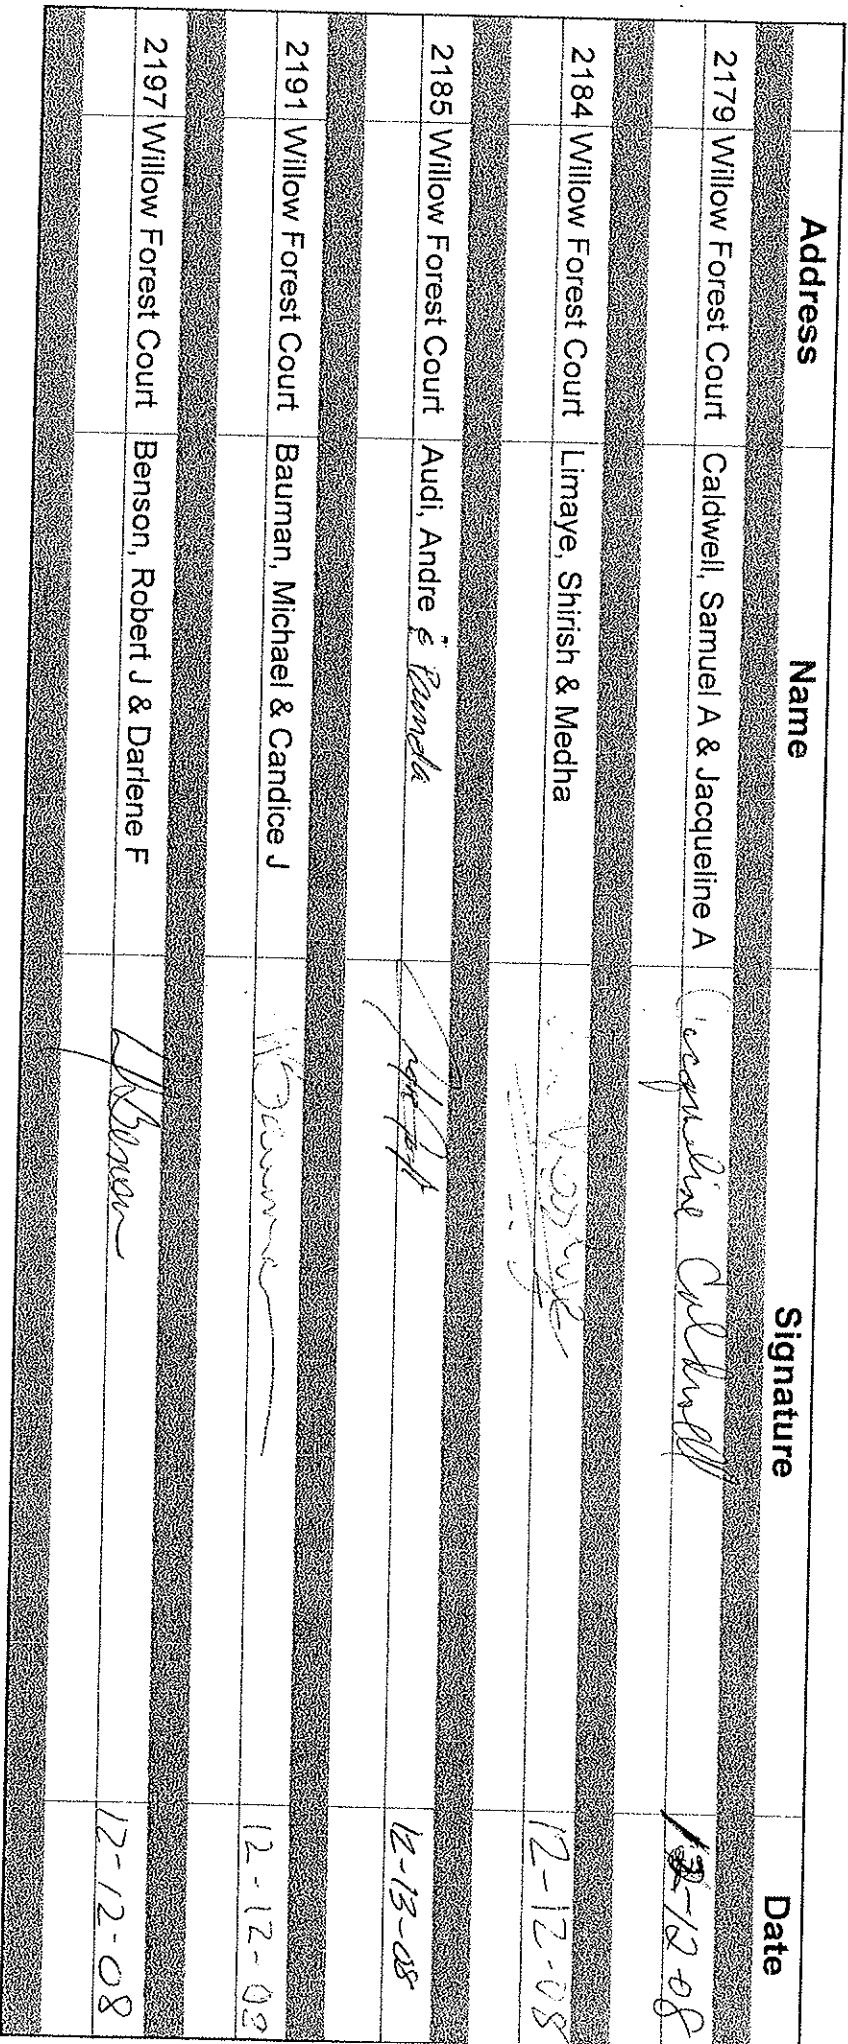 Address Name Signature Date
2179 Willow Forest Court Caldwell, Samuel A & Jacqueline A Jacqueline Caldwell 12-12-08
2184 Willow Forest Court Limaye, Shirish & Medha 12-12-08
2185 Willow Forest Court Audi, Andre & 12-13-08
2191 Willow Forest Court Bauman, Michael & Candice J 12-12-08
2197 Willow Forest Court Benson, Robert J & Darlene F Benson 12-12-08